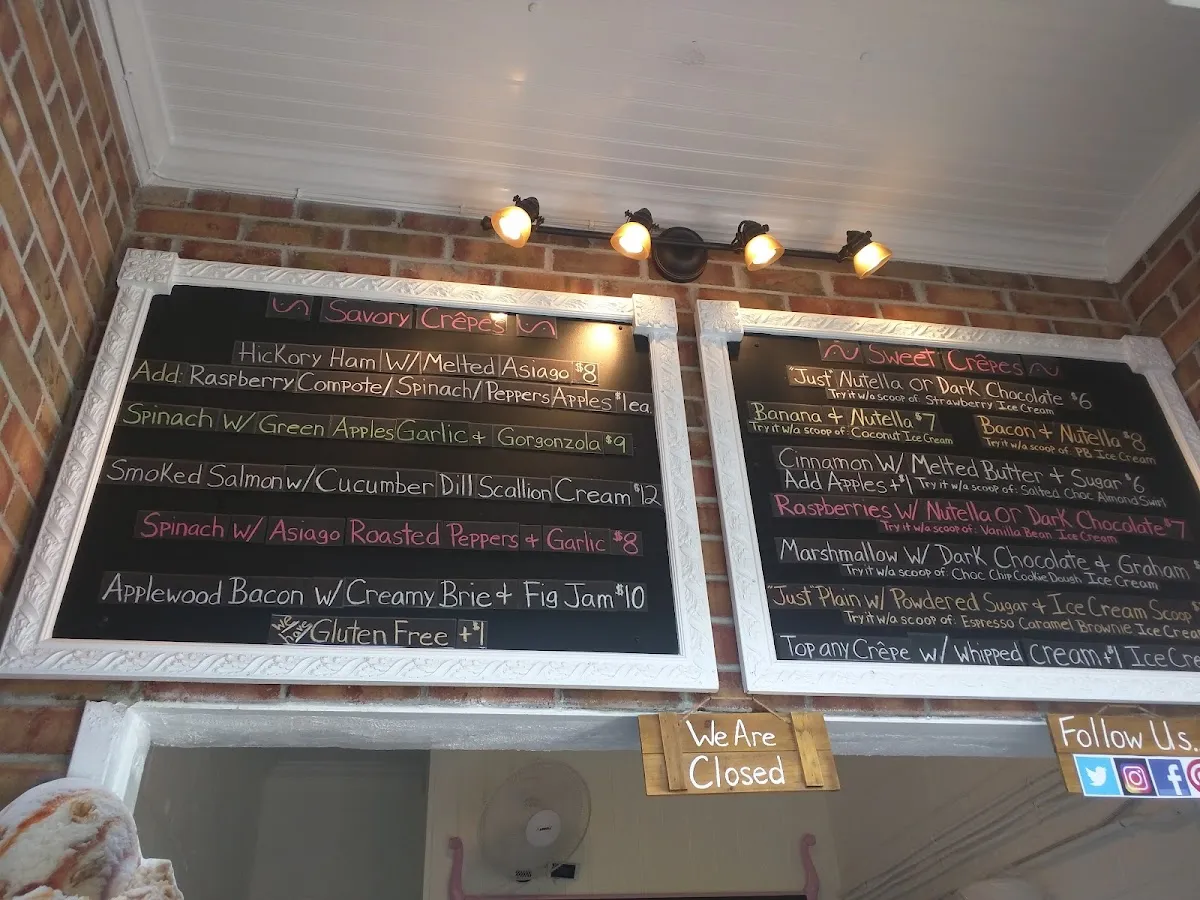 Savory Crêpes
Hickory Ham W/Melted Asiago $8
Add: Raspberry Compote/Spinach/Peppers Apples $1ea.
Spinach W/ Green Apples Garlic + Gorgonzola $9
Smoked Salmon w/Cucumber Dill Scallion Cream $12
Spinach w/ Asiago Roasted Peppers + Garlic $8
Applewood Bacon w/ Creamy Brie + Fig Jam $10
We Have Gluten Free +$1
Sweet Crêpes
"Just" Nutella or Dark Chocolate $6
Try it w/a scoop of: Strawberry Ice Cream
Banana + Nutella $7
Try it w/a scoop of: Coconut Ice Cream
Bacon + Nutella $8
Try it w/a scoop of: PB Ice Cream
Cinnamon W/ Melted Butter + Sugar $6
Add Apples +$1 Try it w/a scoop of: Salted Choc Almond Swirl
Raspberries w/ Nutella or Dark Chocolate $7
Try it w/a scoop of: Vanilla Bean Ice Cream
Marshmallow w/ Dark Chocolate + Graham $
Try it w/a scoop of: Choc Chip Cookie Dough Ice Cream
"Just" Plain w/ Powdered Sugar + Ice Cream Scoop
Try it w/a scoop of: Espresso Caramel Brownie Ice Cream
Top any Crêpe w/ whipped Cream +$1 Ice Cre
We Are
Closed
Follow Us.